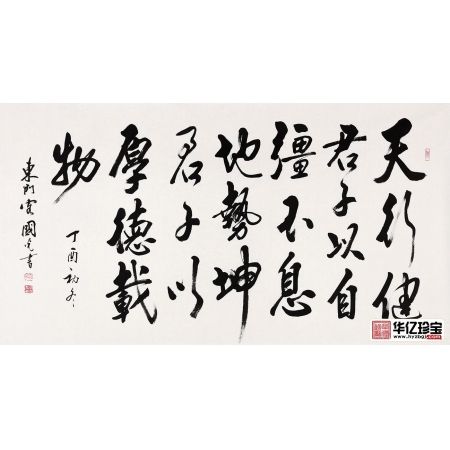 天行健
君子以自
彊不息
地勢坤
君子以
厚德載
物
丁酉初冬
東 國 書
华亿珍宝